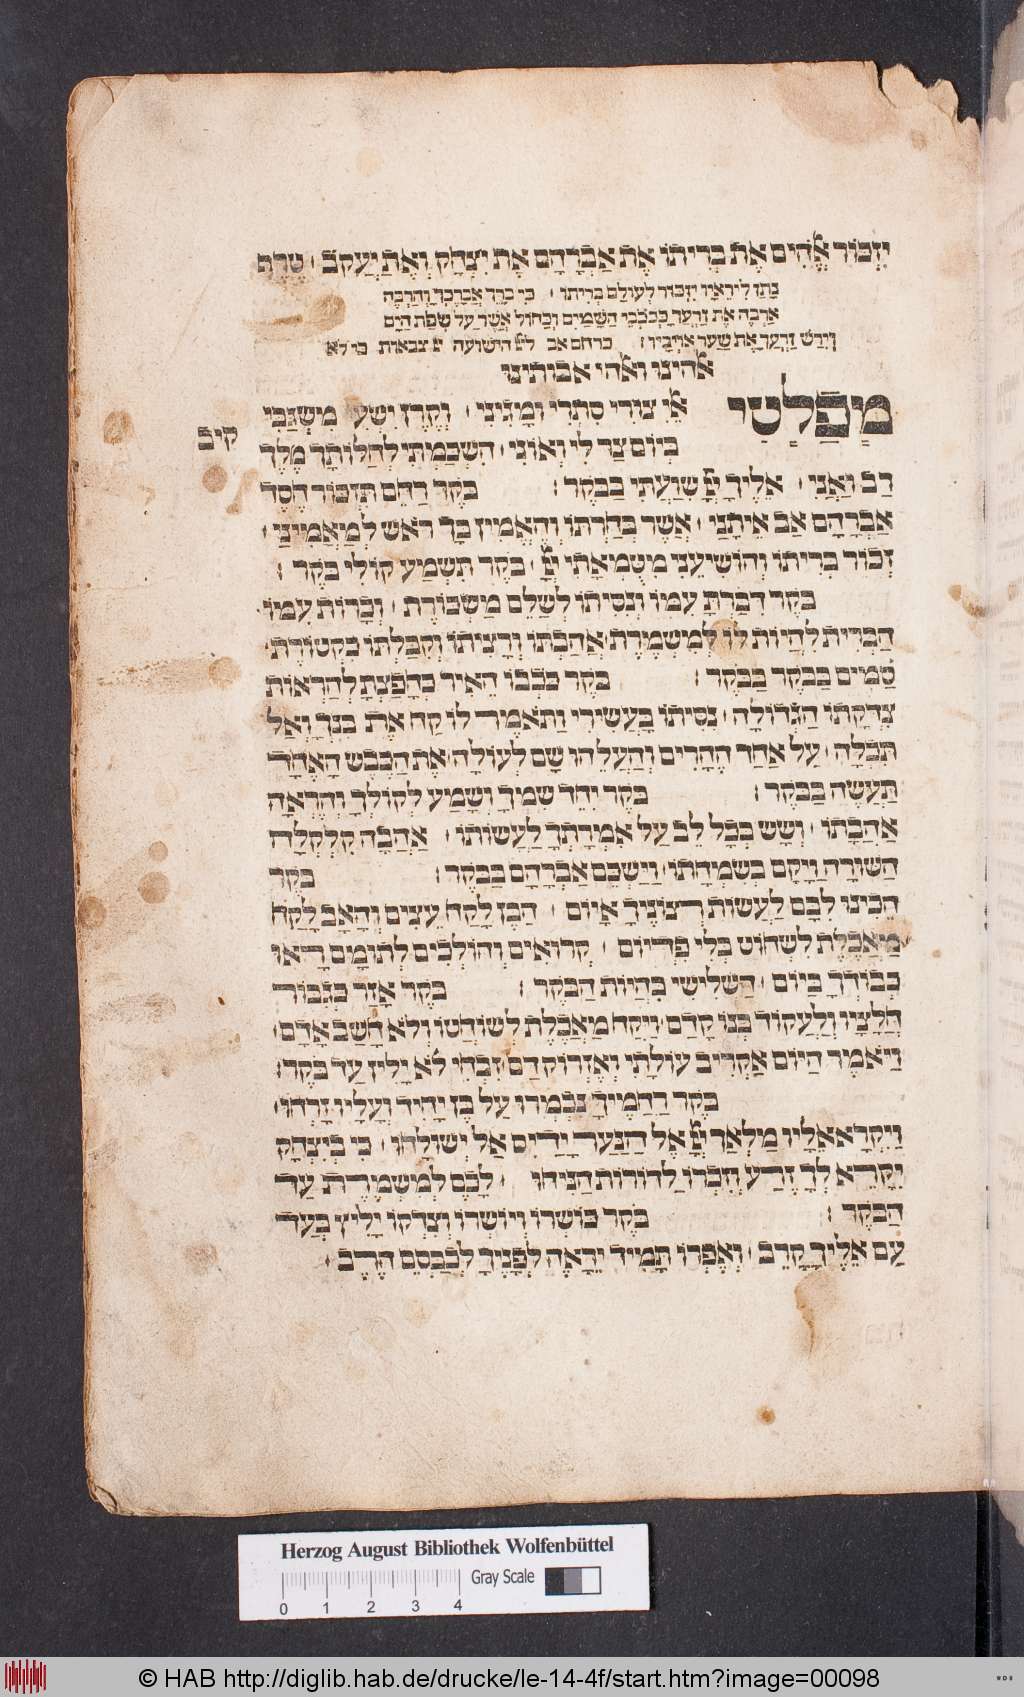 יִזְכּוֹר אֱלֹהִים אֶת בְּרִיתוֹ אֶת אַבְרָהָם אֶת יִצְחָק וְאֶת יַעֲקֹב׃ טֶרֶף
נָתַן לִירֵאָיו יִזְכּוֹר לְעוֹלָם בְּרִיתוֹ׃ כִּי בָרֵךְ אֲבָרֶכְךָ וְהַרְבָּה
אַרְבֶּה אֶת זַרְעֲךָ כְּכֹכְבֵי הַשָּׁמַיִם וְכַחוֹל אֲשֶׁר עַל שְׂפַת הַיָּם
וְיִרַשׁ זַרְעֲךָ אֶת שַׁעַר אוֹיְבָיו׃ כרחם אב לי״י הישועה י״י צבאות כי לא
אלהינו ואלהי אבותינו
מְפַלְטִי
אלי צורי סתרי ומגיני׃ וקרן ישעי משגבי
קיב
ביום צר לי ואוני׃ השכמתי לחלותך מלך
רב ואני׃ אליך י״י שועתי בבקר׃ בקר רחם תזכור חסד
אברהם אב איתני׃ אשר בחרתו והאמין בך ראש למאמיני׃
זכור בריתו והושיעני מטומאתי י״י׃ בקר תשמע קולי בקר׃
בקר דברת עמו ונסיתו לשלם משכורת׃ וכרות עמו
הברית להיות לו למשמרת׃ אהבתו ורציתו וקבלתו בקטורת
סמים בבקר בבקר׃ בקר כוכבו האיר כחפצת להראות
צדקתו הגדולה׃ נסיתו בעשירי ותאמר לו קח את בנך ואל
תבלה׃ על אחד ההרים והעליהו שם לעולה׃ את הכבש האחד
תעשה בבקר׃ בקר יחד שמיך ושמע לקולך והראה
אהבתו׃ ושש כבל לב על אמרתך לעשותו׃ אהבה קלקלה
השורה ויקם בשמחתו׃ וישכם אברהם בבקר׃ בקר
הכינו לבם לעשות רצוניך איום׃ הבן לקח עצים והאב לקח
מאכלת לשחוט בלי פדיום׃ קרואים והולכים לתומם ראו
כבודך ביום׃ השלישי בהיות הבקר׃ בקר אזר כגבור
חלציו ולעקוד בנו קדם׃ ויקח מאכלת לשוחטו ולא חשב אדם׃
ויאמר היום אקריב עולתי ואזרוק דם׃ זבחי לא ילין עד בקר׃
בקר רחמיך נכמרו על בן יחיד ועליו זרחו׃
ויקרא אליו מלאך י״י אל הנער ידיים אל ישולחו׃ כי ביצחק
יקרא לך זרע חברו לדורות הניחו׃ לכם למשמרת עד
הבקר׃ בקר כושרו ויושרו וצדקו יליץ בעד
עם אליך קרב׃ ואפרו תמיד יראה לפניך לככסם הרב׃
Herzog August Bibliothek Wolfenbüttel
Gray Scale
0 1 2 3 4
© HAB http://diglib.hab.de/drucke/le-14-4f/start.htm?image=00098